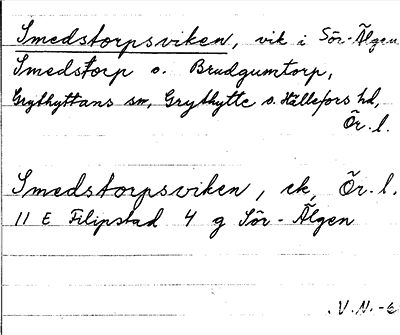 Smedstorpsviken, vik i Sör-Älgen
Smedstorp o. Brudgumtorp,
Grythyttans sn, Grythytte o. Hällefors hd,
Ör. l.
Smedstorpsviken, ek, Ör. l.
11 E Filipstad 4 g Sör-Älgen
V. N. -6